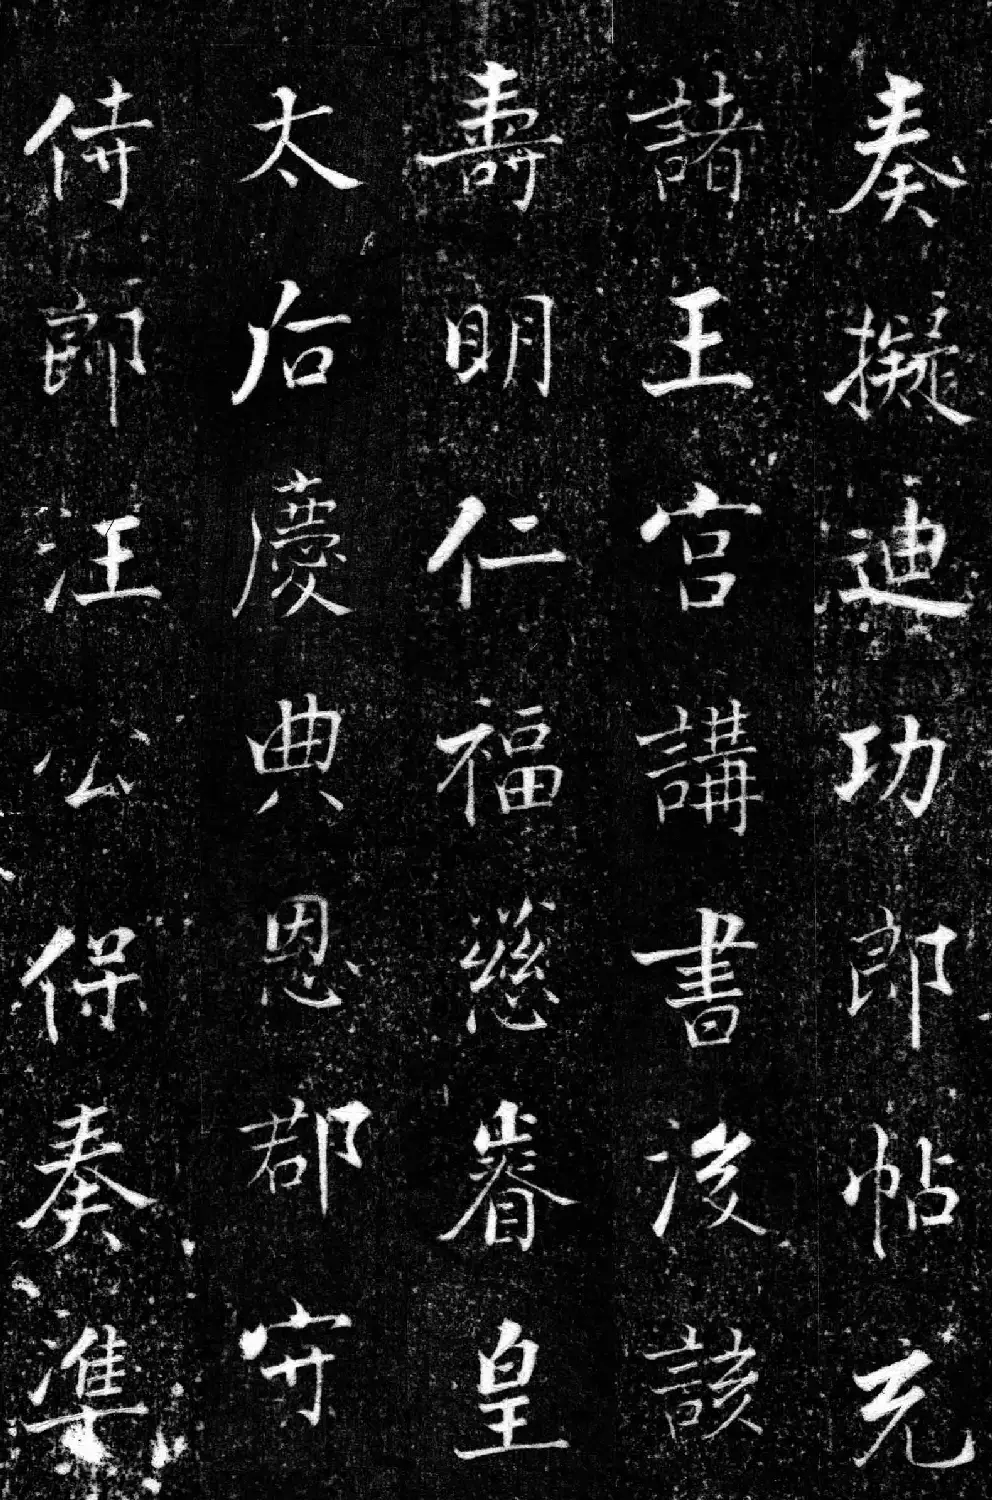 奏擬迪功郎帖充
諸王宮講書後該
壽明仁福慈睿皇
太后慶典恩郡守
侍郎汪公保奏準